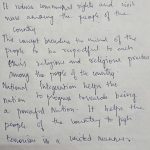 It reduce communal rights and civil
wars among the people of the
country.
This concept broaden the mind of the
people to be respectful to each
others religions and religious practices
among the people of the country.
National Integration helps the
nation to progress towards being
a powerful Nation. It helps the
people of the country to fight
terrorism in a united manner.